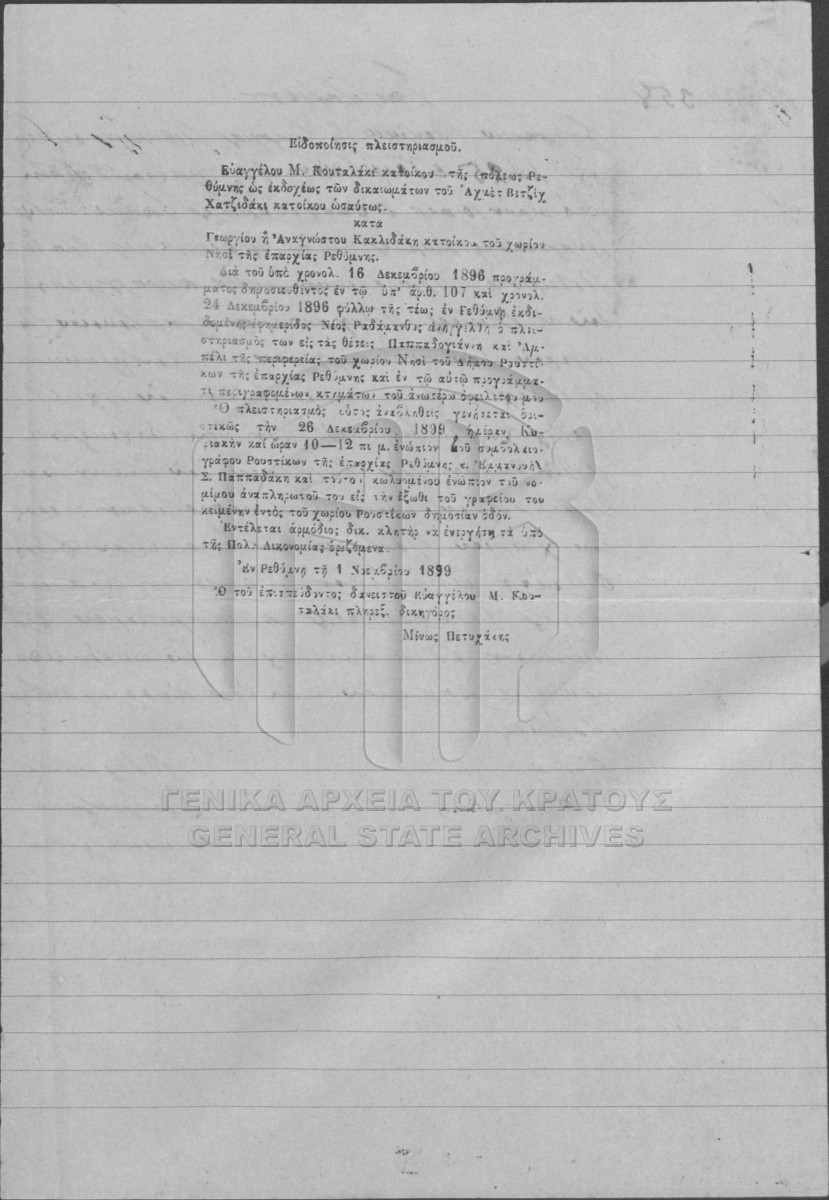 Εἰδοποίησις πλειστηριασμοῦ.
Εὐαγγέλου Μ. Κουταλάκι κατοίκου τῆς πόλεως Ρε-
θύμνης ὡς ἐκδοχέως τῶν δικαιωμάτων τοῦ Ἀχμὲτ Βετζὶχ
Χατζιδάκι κατοίκου ὡσαύτως.
κατὰ
Γεωργίου ἢ Ἀναγνώστου Κακλιδάκη κατοίκου τοῦ χωρίου
Νησὶ τῆς ἐπαρχίας Ρεθύμνης.
Διὰ τοῦ ὑπὸ χρονολ. 16 Δεκεμβρίου 1896 προγράμ-
ματος δημοσιευθέντος ἐν τῷ ὑπ' ἀριθ. 107 καὶ χρονολ.
24 Δεκεμβρίου 1896 φύλλῳ τῆς τέως ἐν Ρεθύμνῃ ἐκδι-
δομένης ἐφημερίδος Νέος Ραδάμανθυς ἀνηγγέλθη ὁ πλει-
στηριασμὸς των εἰς τὰς θέσεις Παππαδογιάννη καὶ Ἀμ-
πέλι τῆς περιφερείας τοῦ χωρίου Νησὶ τοῦ Δήμου Ρουστί-
κων τῆς ἐπαρχίας Ρεθύμνης καὶ ἐν τῷ αὐτῷ προγράμμα-
τι περιγραφομένων κτημάτων τοῦ ἀνωτέρω ὀφειλέτου μου
Ὁ πλειστηριασμὸς οὗτος ἀναβληθεὶς γενήσεται ὁρι-
στικῶς τὴν 26 Δεκεμβρίου 1899 ἡμέραν Κυ-
ριακὴν καὶ ὥραν 10—12 π. μ. ἐνώπιον τοῦ συμβολαιο-
γράφου Ρουστίκων τῆς ἐπαρχίας Ρεθύμνης κ. Ἐμμανουὴλ
Σ. Παππαδάκη καὶ τούτου κωλυομένου ἐνώπιον τοῦ νο-
μίμου ἀναπληρωτοῦ του εἰς τὴν ἔξωθι τοῦ γραφείου του
κειμένην ἐντὸς τοῦ χωρίου Ρουστίκων δημοσίαν ὁδόν.
Ἐντέλεται ἁρμόδιος δικ. κλητὴρ νὰ ἐνεργήσῃ τὰ ὑπὸ
τῆς Πολ. Δικονομίας ὁριζόμενα.
Ἐν Ρεθύμνῃ τῇ 1 Νοεμβρίου 1899
Ὁ τοῦ ἐπισπεύδοντος δανειστοῦ Εὐαγγέλου Μ. Κου-
ταλάκι πληρεξ. δικηγόρος
Μίνως Πετυχάκης
ΓΕΝΙΚΑ ΑΡΧΕΙΑ ΤΟΥ ΚΡΑΤΟΥΣ
GENERAL STATE ARCHIVES